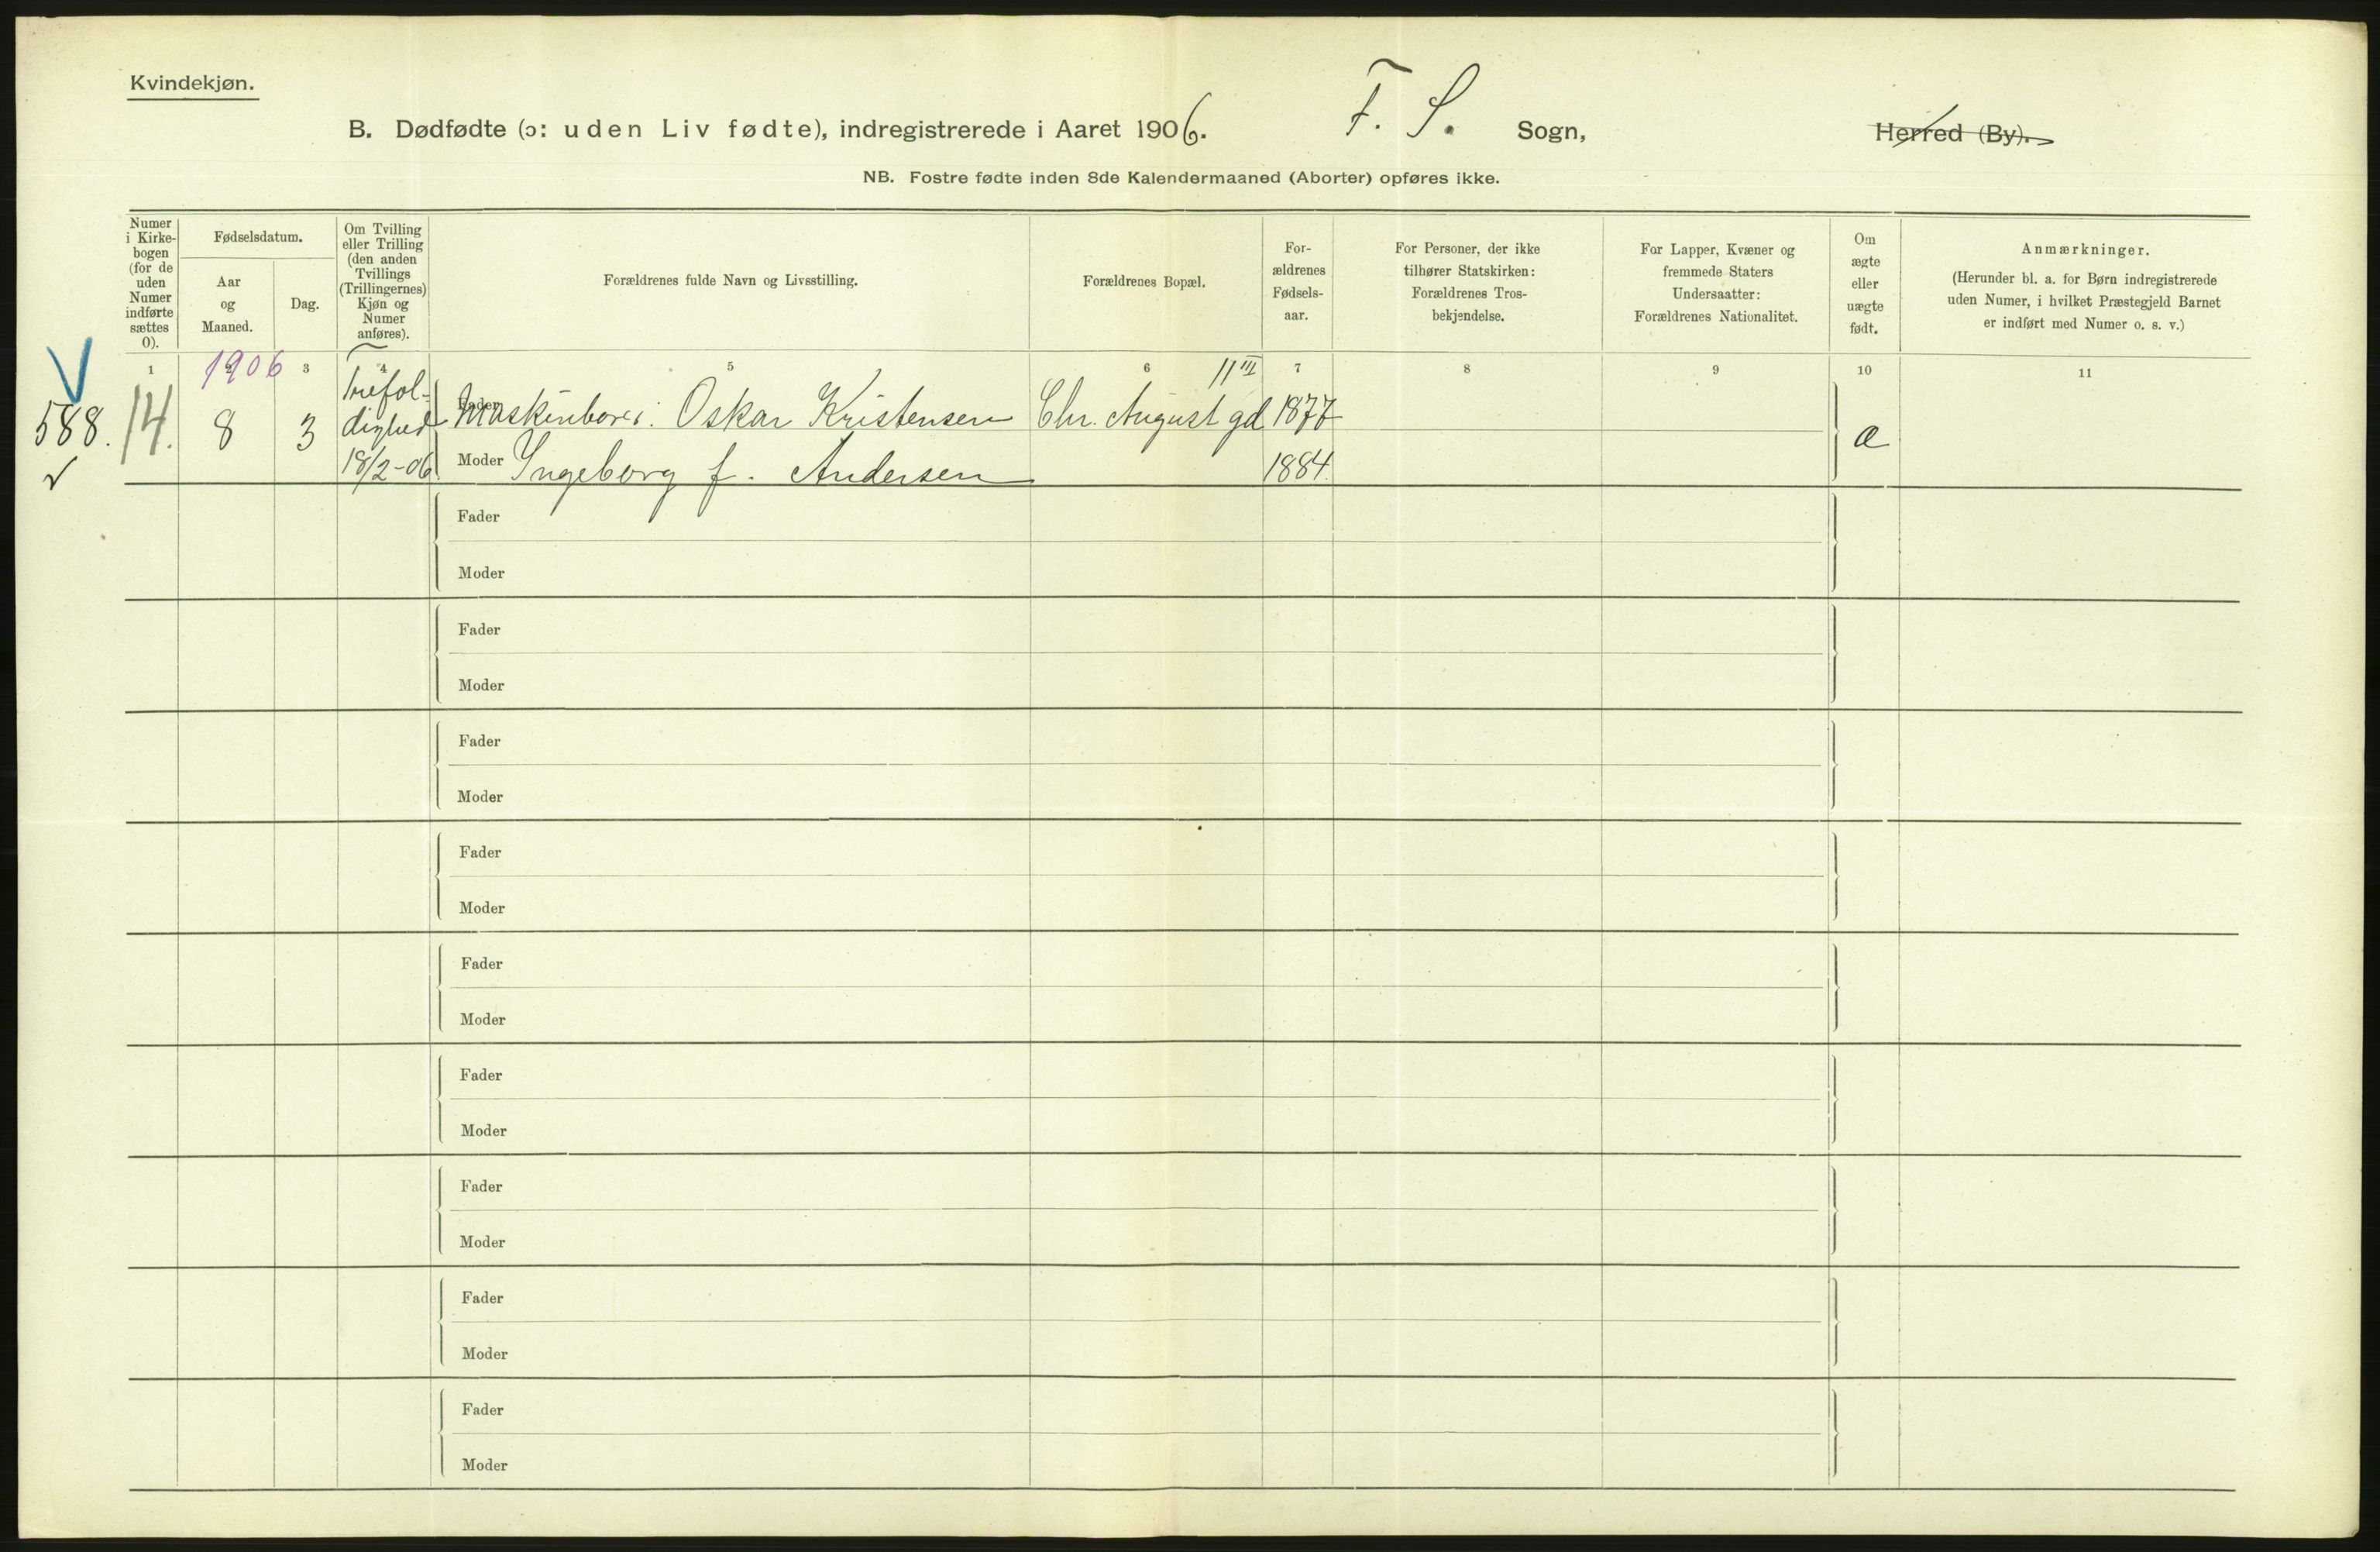 Kvindekjøn.
B. Dødfødte (ɔ: uden Liv fødte), indregistrerede i Aaret 1906. F. S. Sogn, Herred (By).
NB. Fostre fødte inden 8de Kalendermaaned (Aborter) opføres ikke.
Numer
i Kirke-
bogen
(for de
uden
Numer
indførte
sættes
0).
Fødselsdatum.
Aar
og
Maaned.
Dag.
Om Tvilling
eller Trilling
(den anden
Tvillings
(Trillingernes)
Kjøn og
Numer
anføres).
Forældrenes fulde Navn og Livsstilling.
Forældrenes Bopæl.
For-
ældrenes
Fødsels-
aar.
For Personer, der ikke
tilhører Statskirken:
Forældrenes Tros-
bekjendelse.
For Lapper, Kvæner og
fremmede Staters
Undersaatter:
Forældrenes Nationalitet.
Om
ægte
eller
uægte
født.
Anmærkninger.
(Herunder bl. a. for Børn indregistrerede
uden Numer, i hvilket Præstegjeld Barnet
er indført med Numer o. s. v.)
1 2 3 4 5 6 7 8 9 10 11
1906
588. 14. 8 3
Trefol-
dighed
18/2-06
Fader Oskar Kristensen Chr. August gd 11 III 1877
æ
Moder Ingeborg f. Andersen 1884.
Fader
Moder
Fader
Moder
Fader
Moder
Fader
Moder
Fader
Moder
Fader
Moder
Fader
Moder
Fader
Moder
Fader
Moder